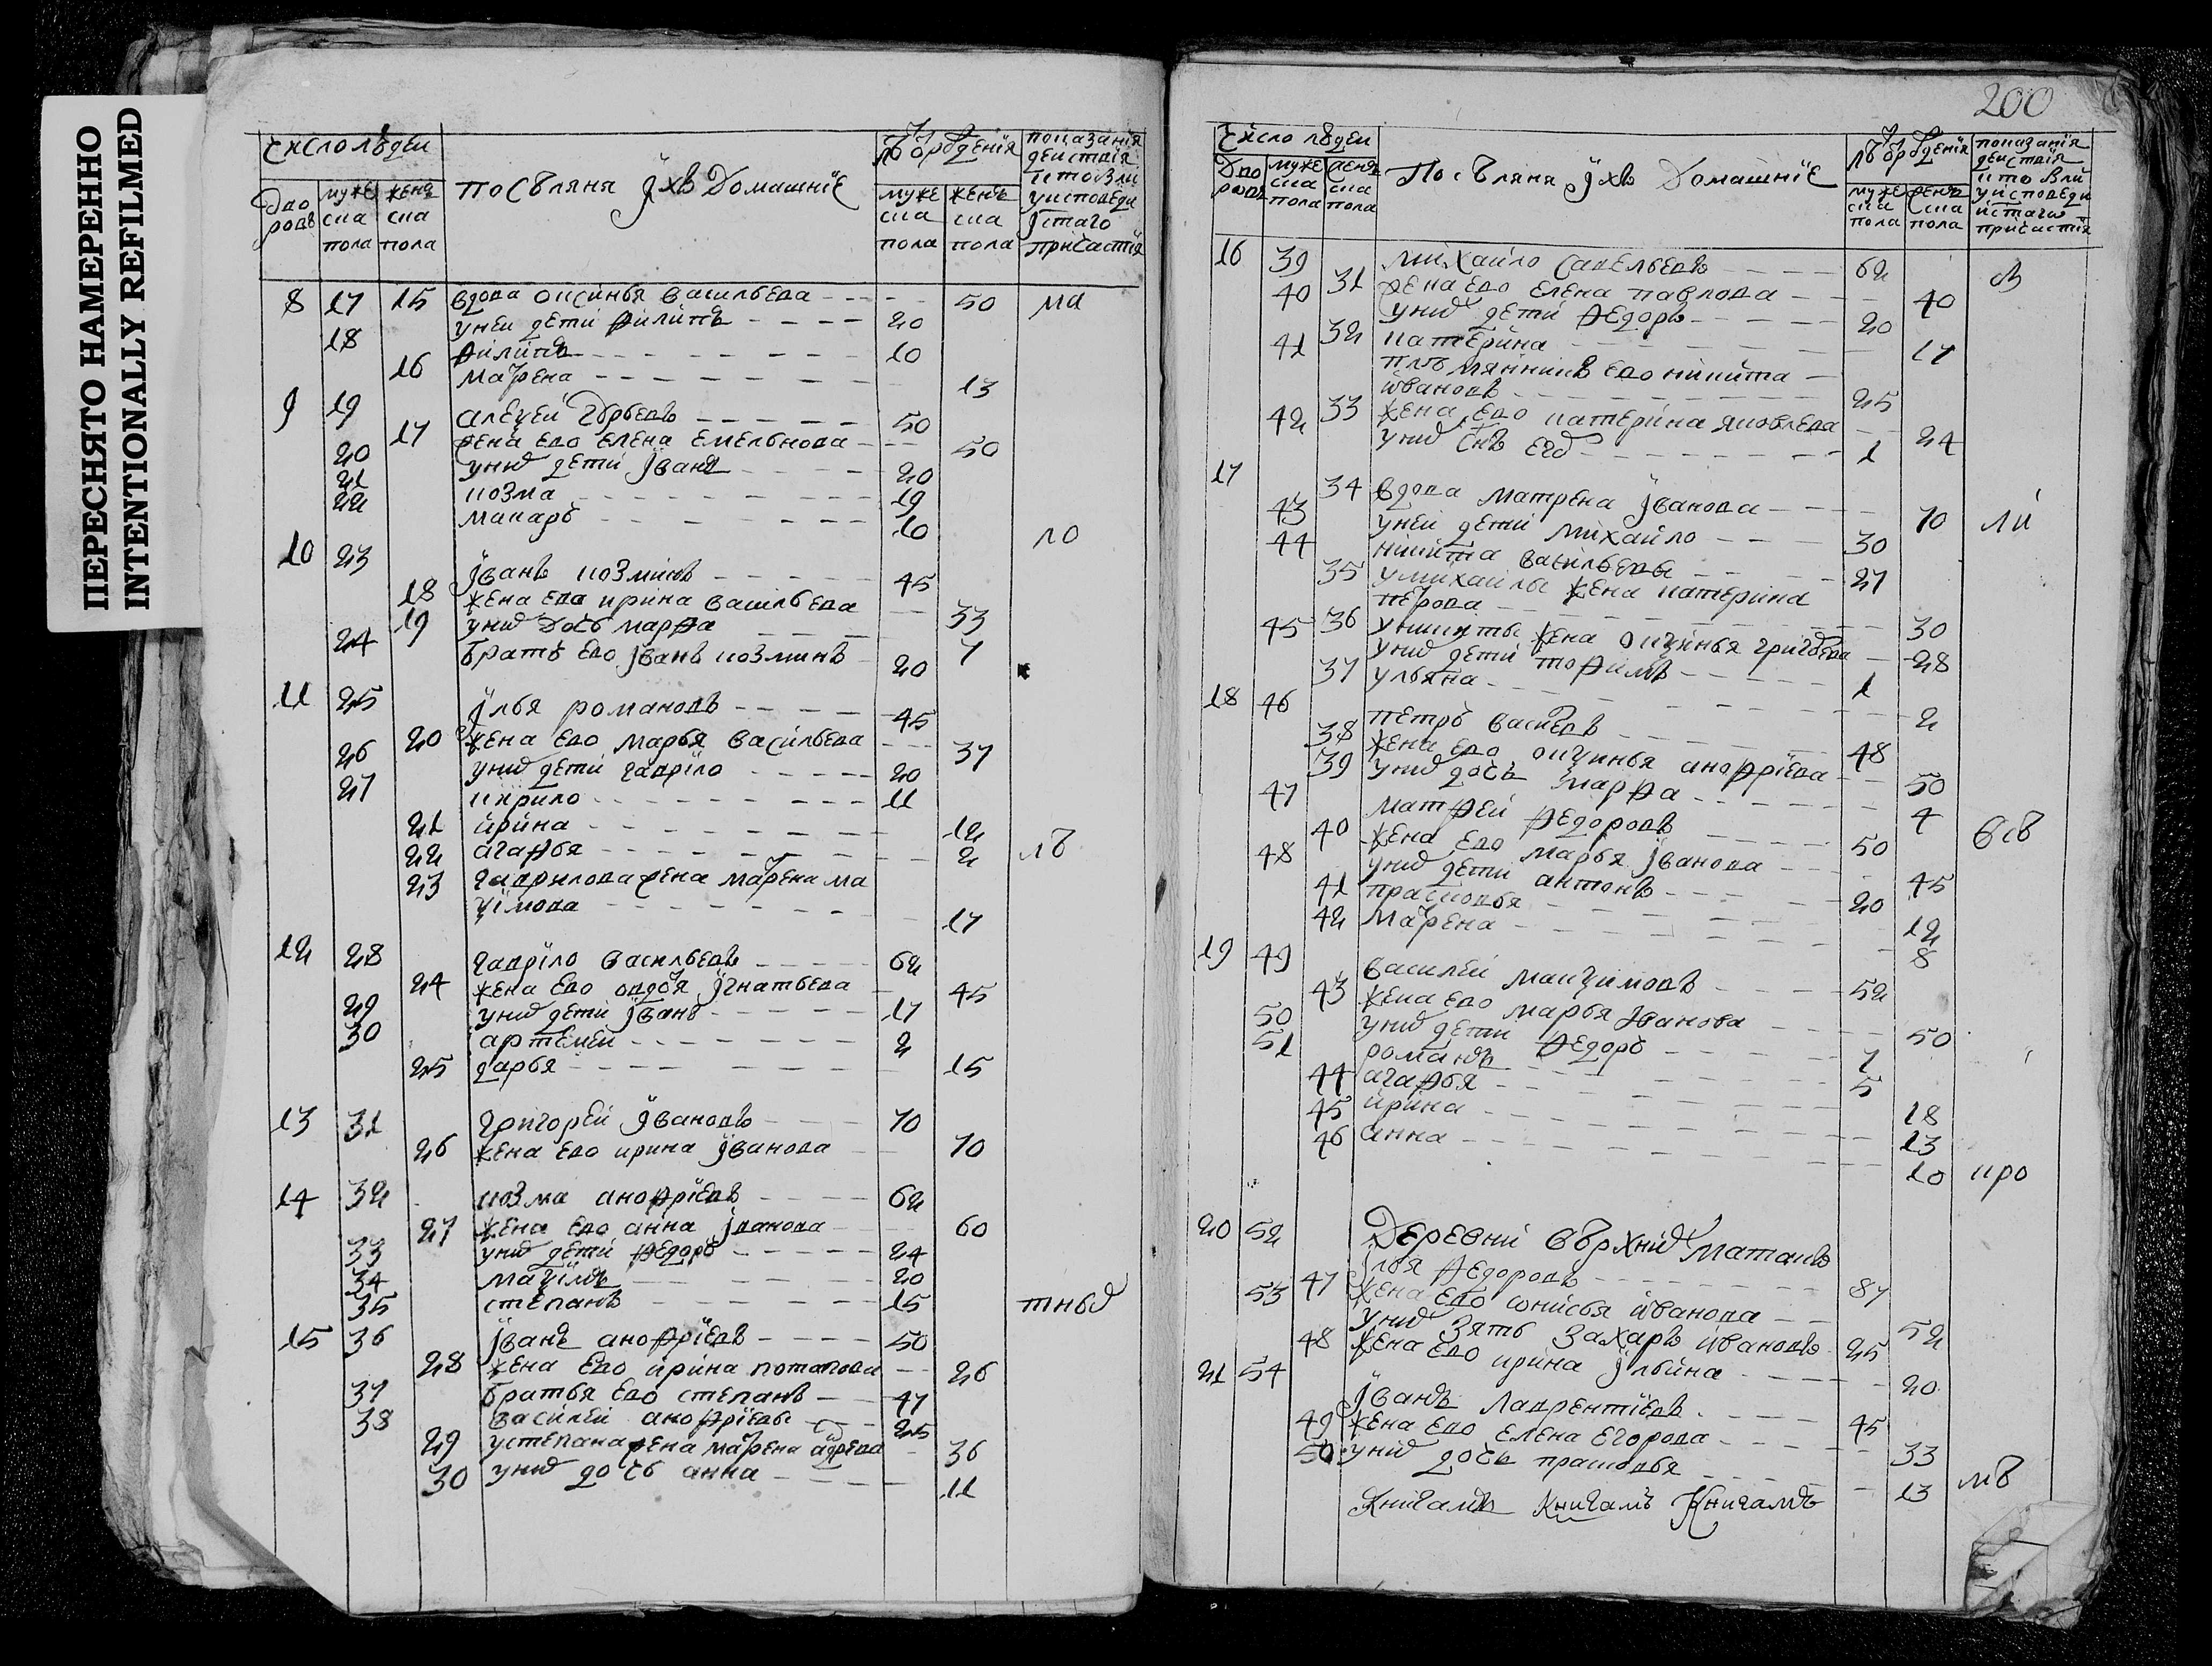 ПЕРЕСНЯТО НАМЕРЕННО
INTENTIONALLY REFILMED
число людеи
дво ровъ
муже ска пола
женъ ска пола
посѣляня ихъ домашние
муже ска пола
женъ ска пола
показания действия
8 17 15 вдова оксинья васильева 50 ма
унеи дети филипъ 20
18 филипъ 10
16 марена 13
9 19 алеѯеи 50
17 жена ево елена емельнова 50
20 уних дети иванъ 20
21 козма 19
22 макаръ 10 ло
10 23 иванъ козминъ 45
18 жена ево ирина васильева 33
19 уних дочь марфа 7
24 братъ ево иванъ козминъ 20
11 25 илья романовъ 45
20 жена ево марья васильева 37
26 уних дети гаврило 20
27 кирило 11
21 ирина 12
22 агафья 2 лѣ
23 гаврилова жена марена ма
ѯимова 17
12 28 гаврило васильевъ 62
24 жена ево овдоя игнатьева 45
29 уних дети иванъ 17
30 артемеи 2
25 дарья 15
13 31 григореи ивановъ 70
26 жена ево ирина иванова 70
14 32 козма анофриевъ 62
27 жена ево анна иванова 60
33 уних дети федоръ 24
34 маѯимъ 20
35 степанъ 15 тных
15 36 иванъ анофриевъ 50
28 жена ево ирина потапова 26
37 братья ево степанъ 47
38 василеи анофриевы 25
29 устепана жена марена 36
30 уних дочь анна 11
200
число людеи
дво ровъ
муже ска пола
женъ ска пола
Посѣляня ихъ домашние
муже ска пола
женъ ска пола
показания действия
16 39 михаило савельевъ 62
31 жена ево елена павлова 40
40 уних дети федоръ 20
32 катерина 17
41 племянникъ ево никита
ивановъ 25
33 жена ево катерина яковлева 24
42 уних снъ его 1
17 34 вдова матрена иванова 70 ли
43 унеи дети михаило 30
44 никита васильевы 27
35 умихаилы жена катерина
30
36 уникиты жена оксинья 28
45 уних дети тофимъ 1
37 ульяна 2
18 46 петръ 48
38 жена ево оксинья анофриева 50
39 уних дочь марфа 4
47 матфеи федоровъ 50 всѣ
40 жена ево марья иванова 45
48 уних дети антонъ 20
41 прасковья 12
42 марена 8
19 49 василеи маиѯимовъ 52
43 жена ево марья иванова 50
50 уних дети федоръ 7
51 романъ 5
44 агафья 18
45 ирина 13
46 анна 10 кро
Деревни вѣрхних матакъ
20 52 илья федоровъ 87
47 жена ево ѡнисья иванова 52
53 уних зять захаръ ивановъ 25
48 жена ево ирина ильина 20
21 54 иванъ лаврентиевъ 45
49 жена ево елена егорова 33
50 уних дочь прасковья 13 мѣ
Книгамъ книгамъ Книгамъ